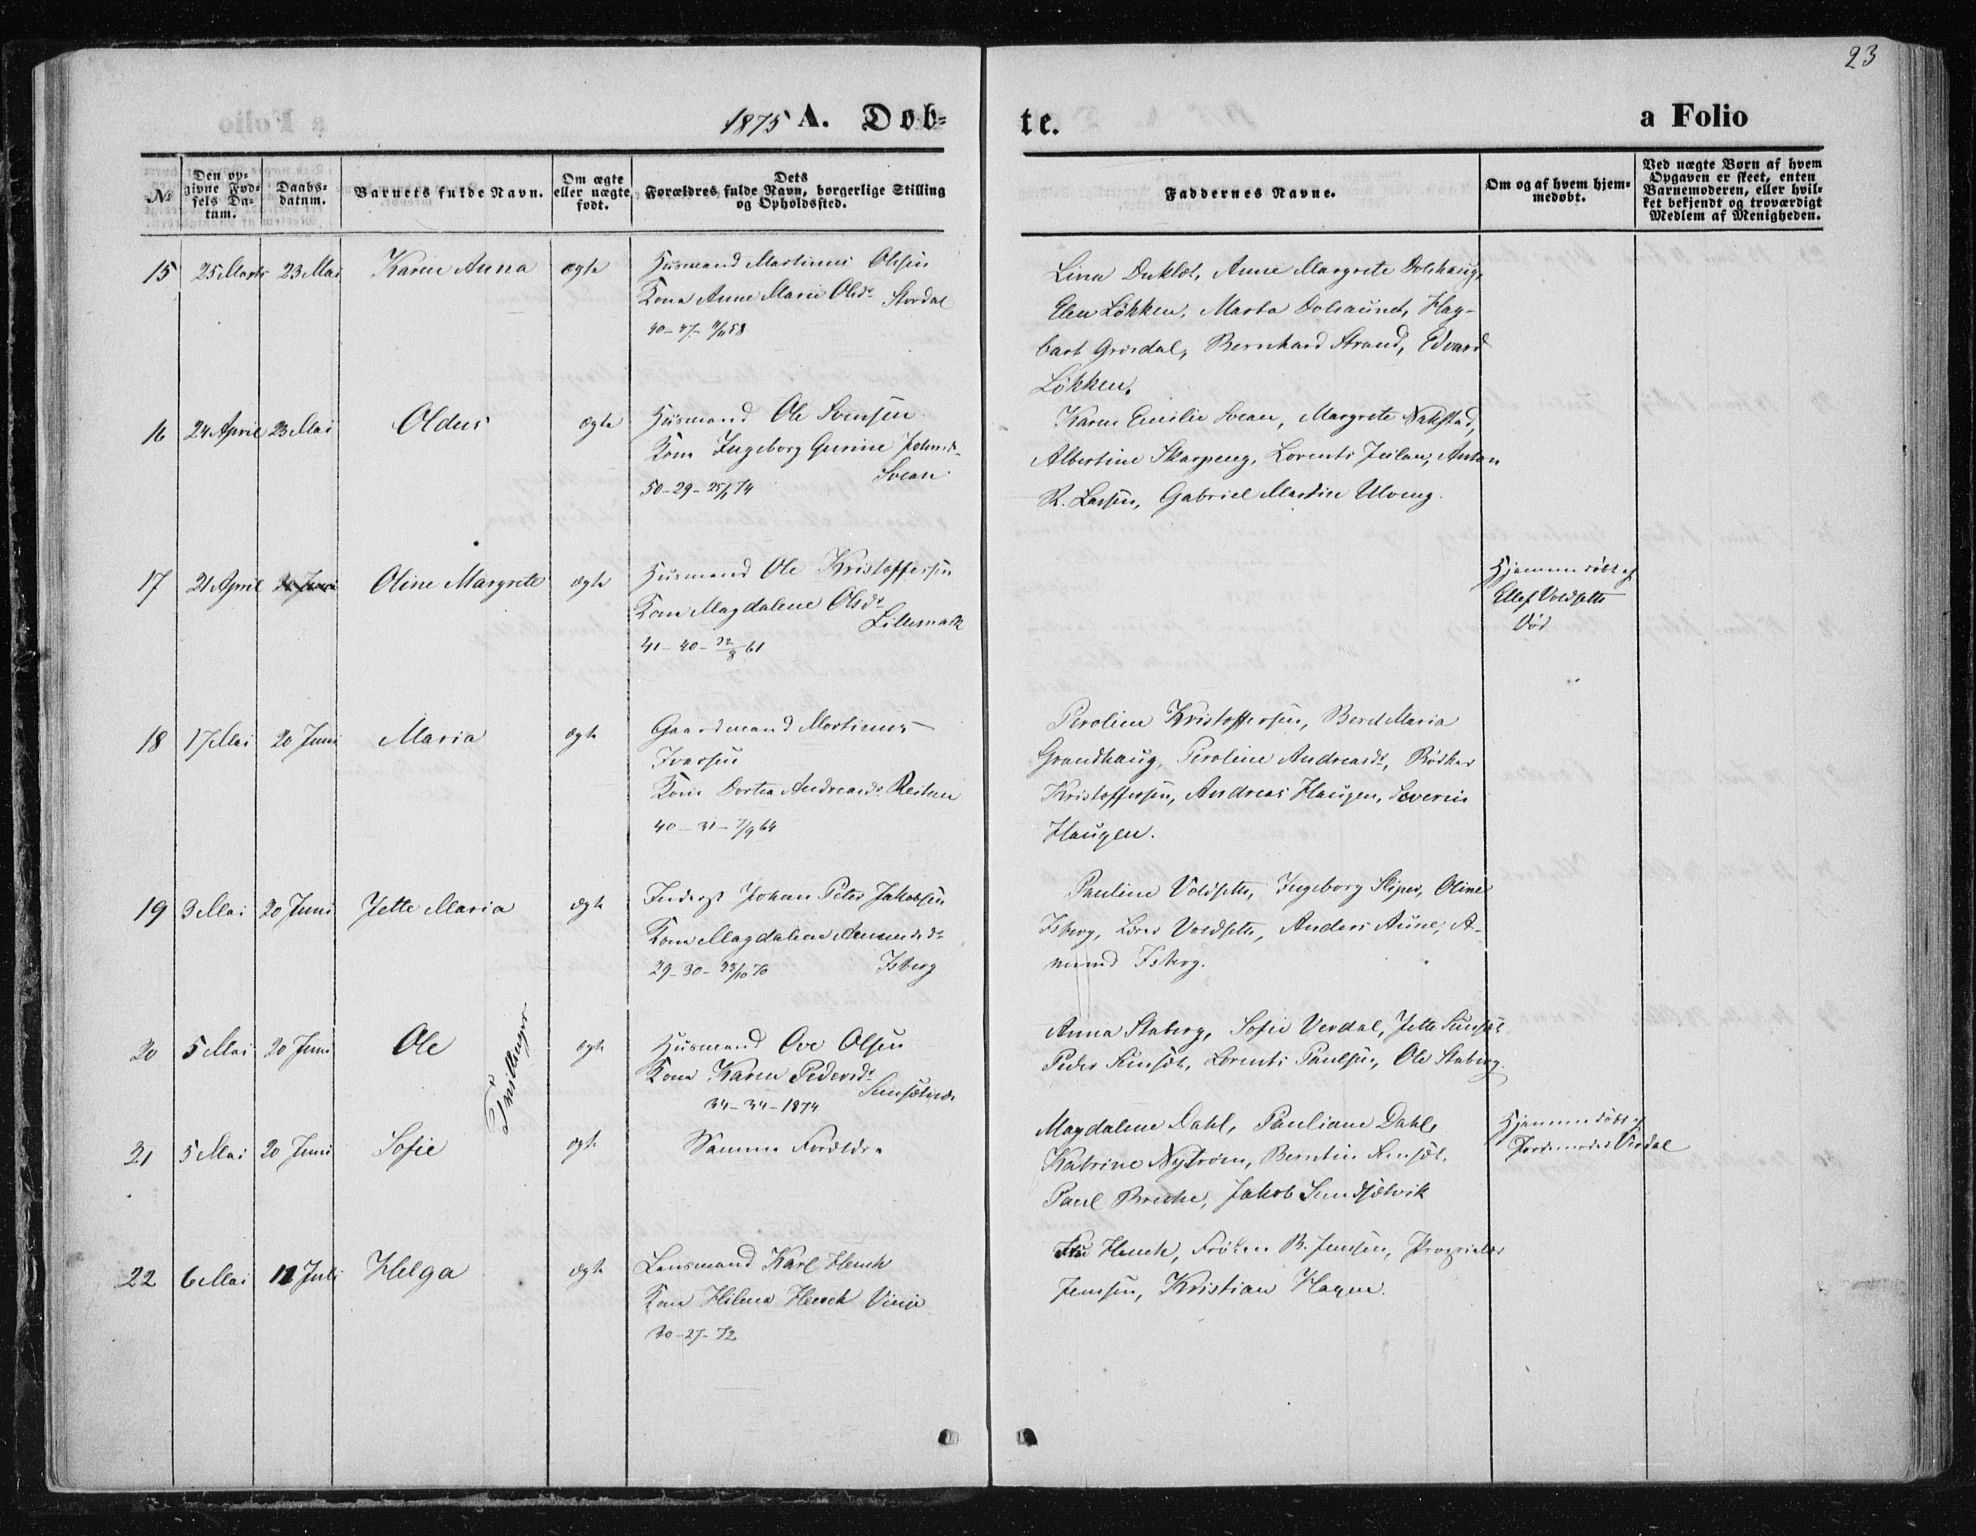 23
1875 A. Døb-
te.
a Folio
№
Den op-
givne Fød-
sels Da-
tum.
Daabs-
datum.
Barnets fulde Navn.
Om ægte
eller uægte
født.
Dets
Forældres fulde Navn, borgerlige Stilling
og Opholdssted.
Faddernes Navne.
Om og af hvem hjem-
medøbt.
Ved uægte Børn af hvem
Opgaven er skeet, enten
Barnemoderen, eller hvil-
ket bekjendt og troværdigt
Medlem af Menigheden.
15 25 Marts 23 Mai Karen Anna ægte Husmand Martinus Olsen
Kona Anne Marie Olsdr Stordal
40-47- 58
Anne Margrete
Elen Løkken, Marta Hag-
bart Grisdal, Bernhard Strand, Edvard
Løkken.
16 24 April 23 Mai Oldus ægte Husmand Ole Svensen
Kona Ingeborg Gurine
Svean
50-29-25/ 74
Karen Emilie Svean, Margrete
Albertine Skarpeng, Lorents Anton
R. Gabriel Martin Ulveng.
17 21 April 20 Juni Oline Margrete ægte Husmand Ole Kristoffersen
Kona Magdalene Olsdr
Lillemark
41-40-22/8 61
Hjemmedøbt af
Ellef Voldsette
Død
18 17 Mai 20 Juni Maria ægte Gaardmand Martinus
Ivarsen
Kona Dortea Andreasdr Reitan
40-31-7/9 64
Peroline Kristoffersen, Beret Maria
Grandhaug, Peroline Andreasdr, Bødker
Kristoffersen, Andreas Haugen, Severin
Haugen.
19 3 Mai 20 Juni Jette Maria ægte Inderst Johan Peter Jakobsen
Kona Magdalena
Isberg
29-30-23/10 70
Pauline Voldsette, Ingeborg Oline
Isberg, Voldsette, Anders Aune, A-
mund Isberg.
20 5 Mai 20 Juni Ole ægte Husmand Ove Olsen
Kona Karen Pedersdr
34-34-1874
Tvillinger
Anna Staberg, Sofie Verdal, Jette
Peder Lorents Paulsen, Ole Staberg.
21 5 Mai 20 Juni Sofie ægte Samme Forældre
Magdalene Dahl, Pauliane Dahl,
Katrine Nystrøm, Berntin
Paul Jakob
Hjemmedøbt af
Jordemoder Verdal
22 6 Mai 11 Juli Helga ægte Lensmand Karl Hench
Kona Hilena Hench Vinje
30-27-72
Fru Hench, Frøken B. Jenssen, Proprietær
Jenssen, Kristian Hagen.